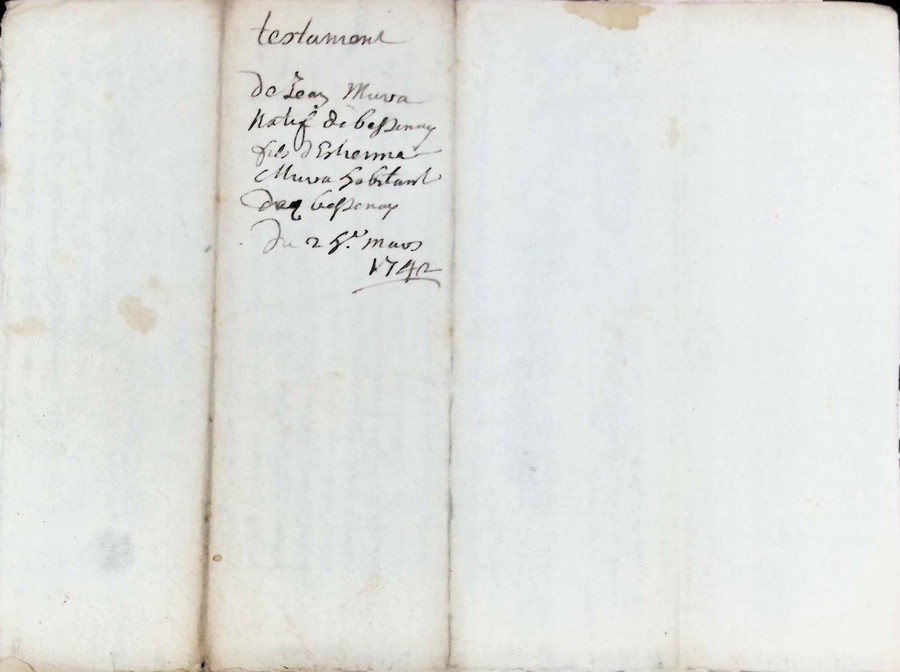 testament
de Jean Muva
Natif de bessenay
fils d'Estienna
Muva habitant
bessenay
Du 2 mars
1742